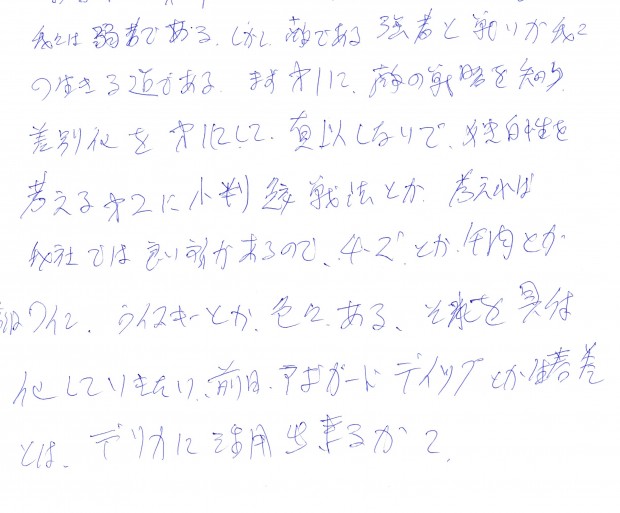 我々は弱者である。しかし、敵である強者と戦いが我々
の生きる道がある。まず才1に、敵の戦略を知り
差別化を才1にして、真似しないで、独自性を
考える 才2に小判鮫戦法とか、考えれば
我社では良い所があるので、チーズとか、牛肉とか
ワイン、ウイスキーとか、色々、ある、それを具体
化していきたい、前回、アボガードディップとか生春巻
とは、デリカに活用出来るかで、